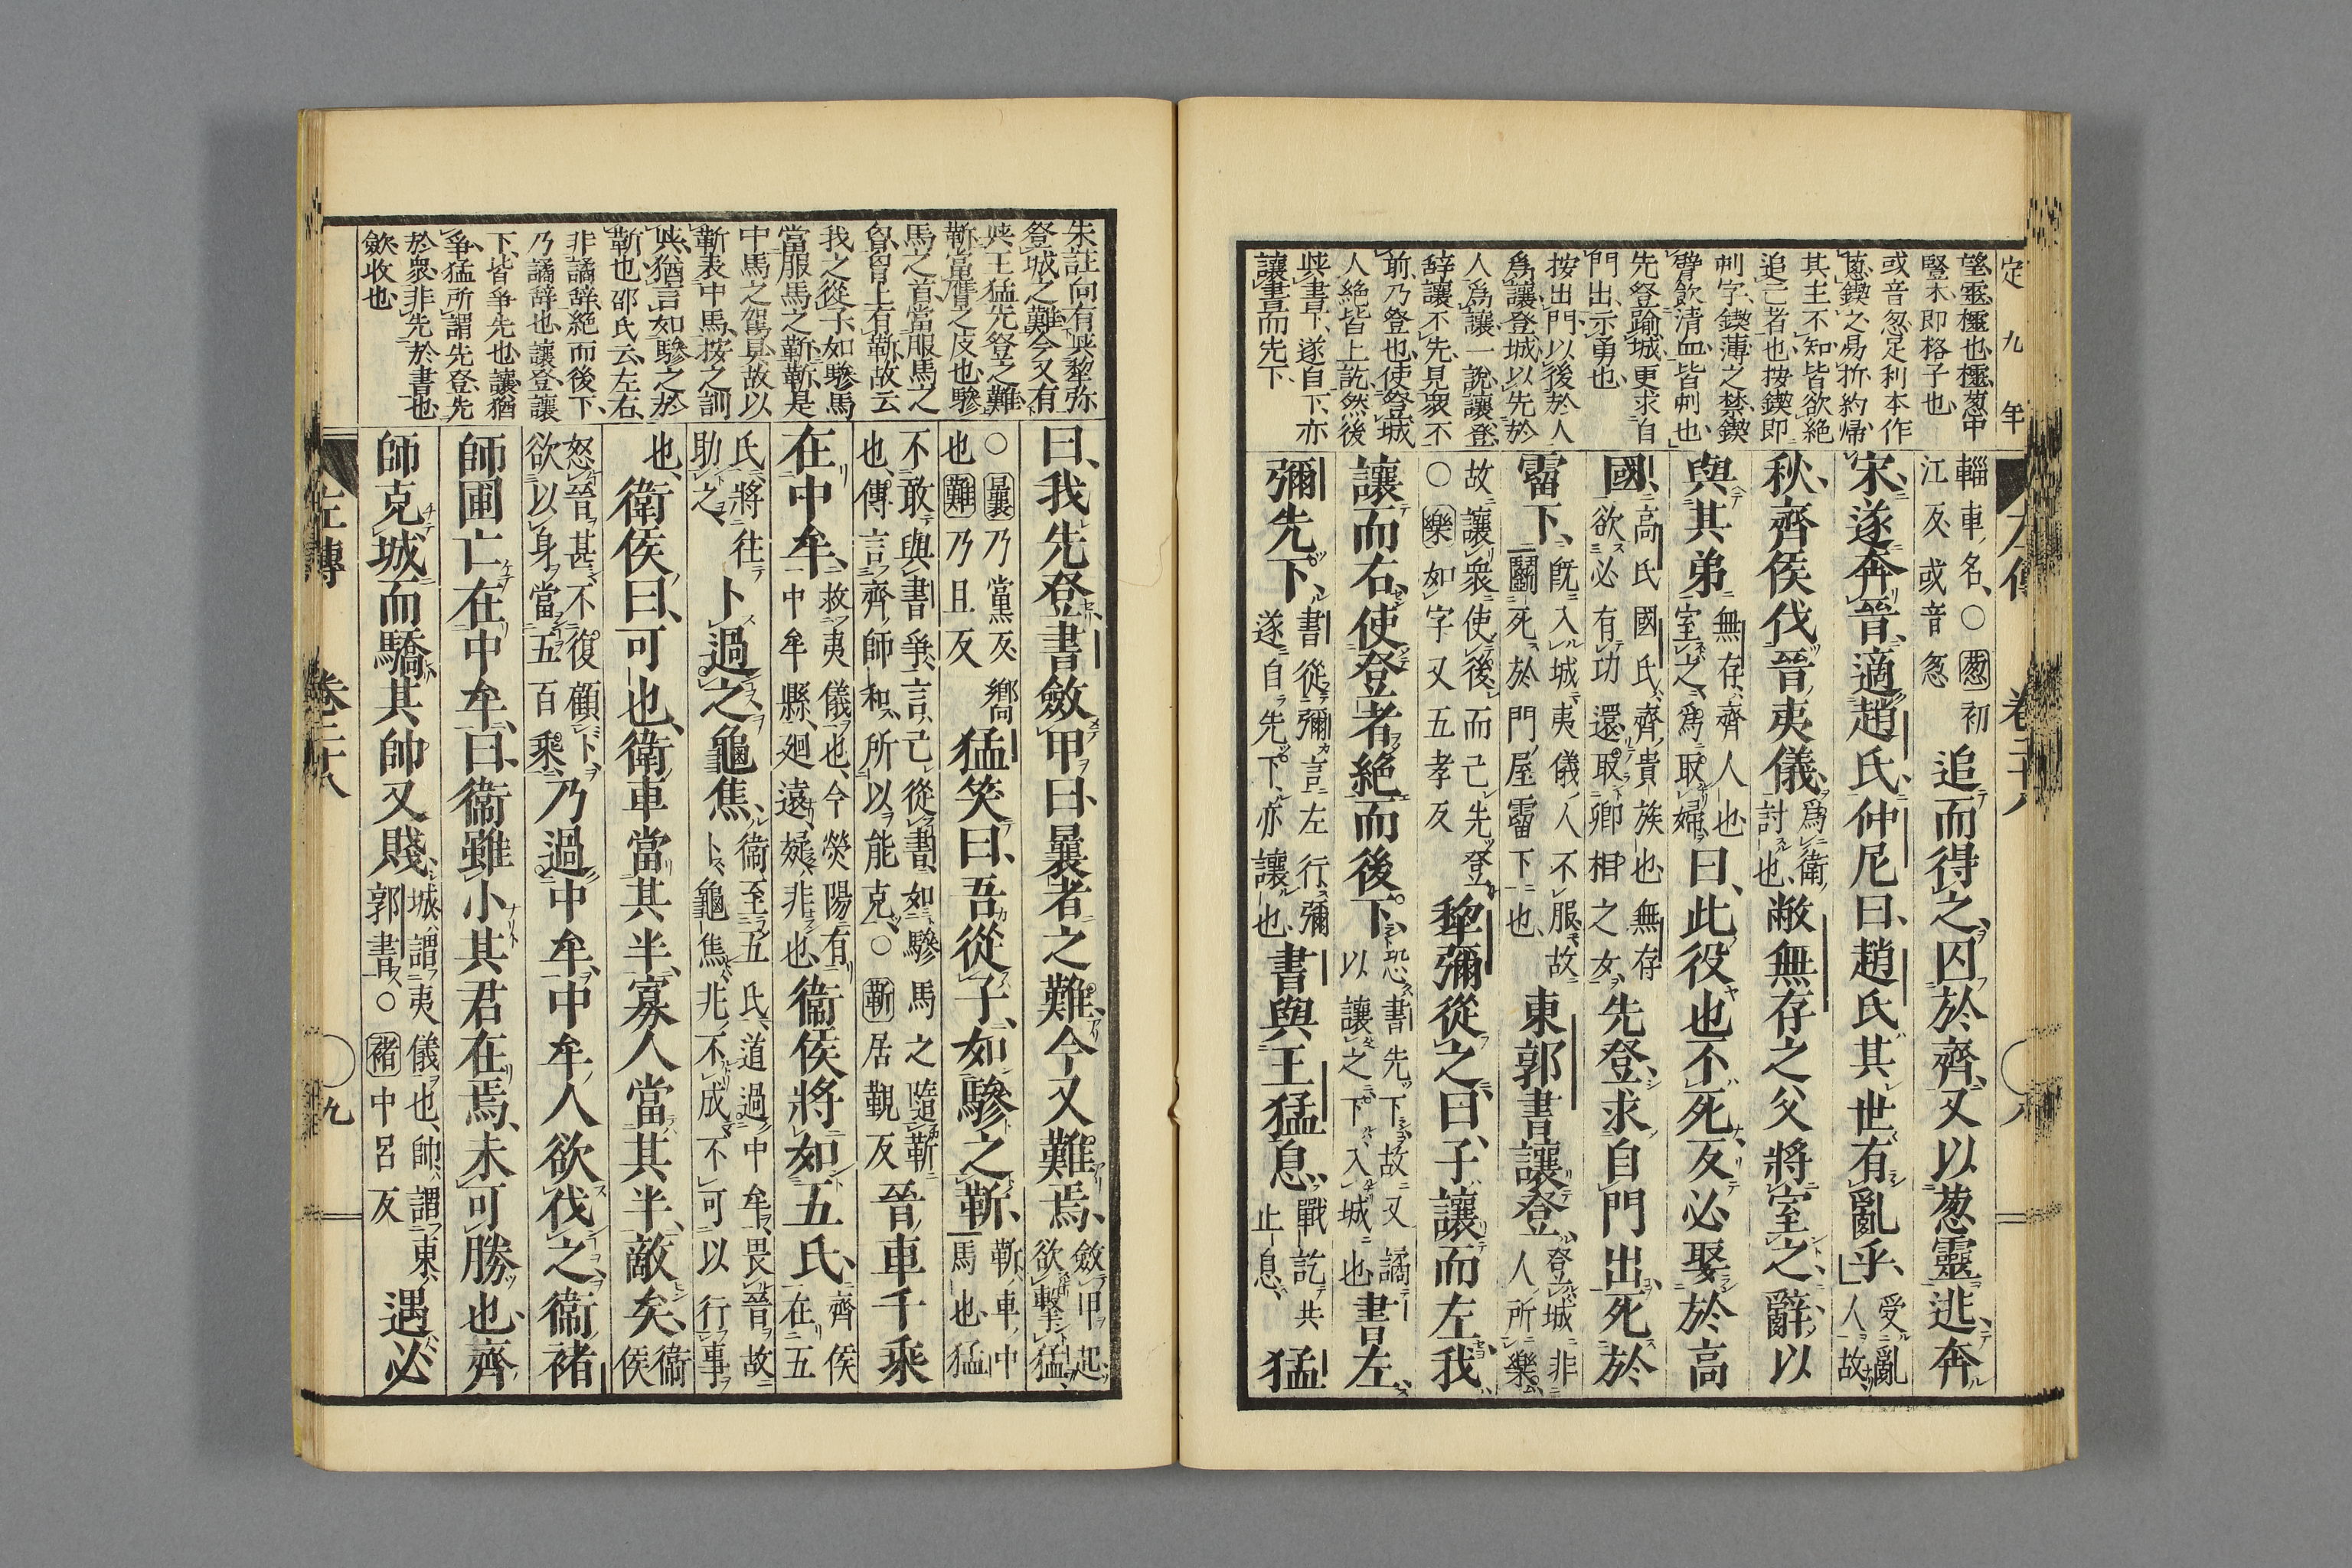 定九年
望靈欞也欞葱中
豎木即格子也
或音忽足利本作
葱鍥之易折約帰
其主不知皆欲絶
追己者也按鍥即
刺字鍥薄之禁鍥
臂飲清血皆刺也
先登踰城更求自
門出示勇也
按出門以後於人
爲讓登城以先於
人爲讓一說讓登
辞讓不先見衆不
前乃登也使登城
人絶皆上訖然後
與書下遂自下亦
讓書而先下
左傳 卷二十八
輜車名○葱初江反或音怱追而得之囚於齊又以葱靈逃奔
宋遂奔晉適趙氏仲尼曰趙氏其世有亂乎受亂人故
秋齊侯伐晉夷儀爲衛討也敝無存之父將室之辭以
與其弟無存齊人也室之爲取婦曰此役也不死反必娶於高
國高氏國氏齊貴族也無存欲必有功還取卿相之女先登求自門出死於
霤下既入城夷儀人不服故鬭死於門屋霤下也東郭書讓登登城非人所樂
故讓衆使後而己先登○樂如字又五孝反犂彌從之曰子讓而左我
讓而右使登者絶而後下恐書先下故又譎以讓之下入城也書左
彌先下書從彌言左行彌遂自先下亦讓也書與王猛息戰訖共止息猛
朱註向有與犂弥
登城之難今又有
與王猛先登之難
靳當膺之皮也驂
馬之首當服馬之
胷胷上有靳故云
我之從子如驂馬
當服馬之靳靳是
中馬之駕具故以
靳表中馬按之訓
與猶言如驂之於
靳也邵氏云左右
非譎辞絶而後下
乃譎辞也讓登讓
下皆爭先也讓猶
爭猛所謂先登先
於衆非先於書也
歛收也
曰我先登書斂甲曰曩者之難今又難焉斂甲起欲擊猛
○曩乃黨反鄉也難乃且反猛笑曰吾從子如驂之靳靳車中馬也猛
不敢與書爭言己從書如驂馬之隨靳也傳言齊師和所以能克○靳居覲反晉車千乘
在中牟救夷儀也今熒陽有中牟縣廻遠疑非也衞侯將如五氏齊侯在五
氏將往助之卜過之龜焦衞至五氏道過中牟畏晉故卜龜焦兆不成不可以行事
也衛侯曰可也衛車當其半寡人當其半敵矣衞侯
怒晉甚不復顧卜欲以身當五百乘乃過中牟中牟人欲伐之衞褚
師圃亡在中牟曰衞雖小其君在焉未可勝也齊
師克城而驕其帥又賤城謂夷儀也帥謂東郭書○褚中呂反遇必
左傳 卷二十八 九